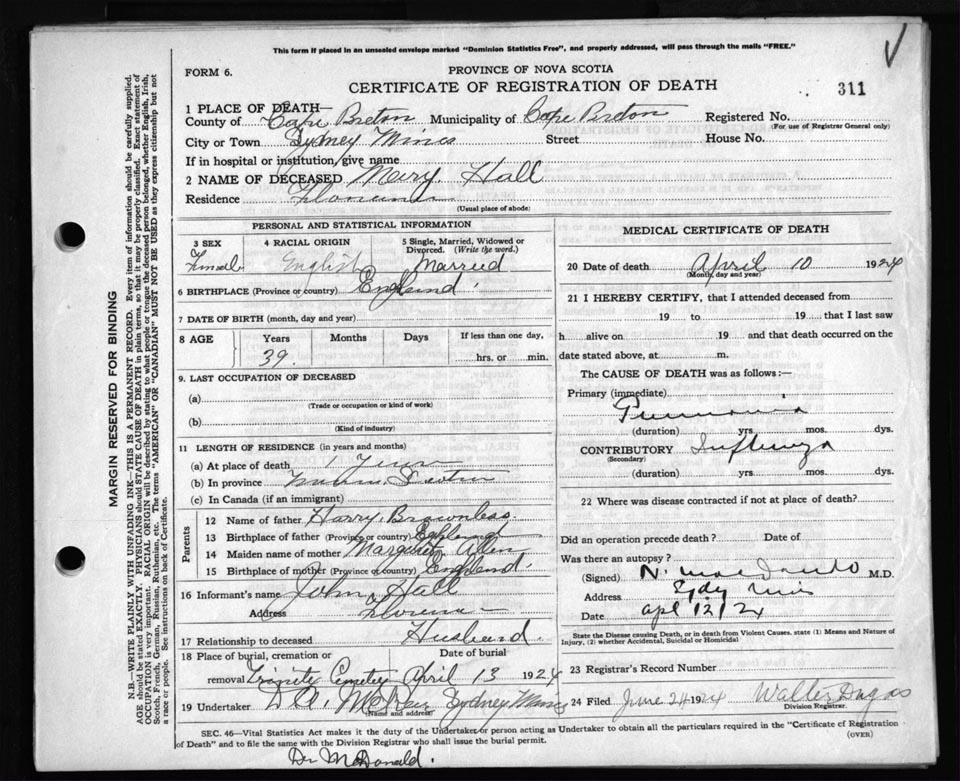 This form if placed in an unsealed envelope marked "Dominion Statistics Free", and properly addressed, will pass through the mails "FREE."
FORM 6.
PROVINCE OF NOVA SCOTIA
CERTIFICATE OF REGISTRATION OF DEATH
311
1 PLACE OF DEATH—
County of Cape Breton Municipality of Cape Breton Registered No.
(For use of Registrar General only)
City or Town Sydney Mines Street House No.
If in hospital or institution, give name
2 NAME OF DECEASED Mary Hall
Residence Florence
(Usual place of abode)
PERSONAL AND STATISTICAL INFORMATION
3 SEX 4 RACIAL ORIGIN 5 Single, Married, Widowed or Divorced. (Write the word.)
Female English Married
6 BIRTHPLACE (Province or country) England
7 DATE OF BIRTH (month, day and year)
8 AGE Years Months Days If less than one day,
39 hrs. or min.
9. LAST OCCUPATION OF DECEASED
(a)
(Trade or occupation or kind of work)
(b)
(Kind of industry)
11 LENGTH OF RESIDENCE (in years and months)
(a) At place of death 1 Year
(b) In province Scotia
(c) In Canada (if an immigrant)
Parents
12 Name of father Harry Brownless
13 Birthplace of father (Province or country) England
14 Maiden name of mother Margaret Allen
15 Birthplace of mother (Province or country) England
16 Informant's name John Hall
Address Florence
17 Relationship to deceased Husband
18 Place of burial, cremation or removal Date of burial
Trinity Cemetery April 13 1924
19 Undertaker Sydney Mines
(Name and address)
MEDICAL CERTIFICATE OF DEATH
20 Date of death April 10 1924
(Month, day and year)
21 I HEREBY CERTIFY, that I attended deceased from
19 to 19 that I last saw
h alive on 19 and that death occurred on the
date stated above, at m.
The CAUSE OF DEATH was as follows:—
Primary (immediate)
Pneumonia
(duration) yrs. mos. dys.
CONTRIBUTORY Influenza
(Secondary)
(duration) yrs. mos. dys.
22 Where was disease contracted if not at place of death?
Did an operation precede death? Date of
Was there an autopsy?
(Signed) N. M.D.
Address Sydney Mines
Date Apl 12/24
State the Disease causing Death, or in death from Violent Causes. state (1) Means and Nature of
Injury, (2) whether Accidental, Suicidal or Homicidal
23 Registrar's Record Number
24 Filed June 24 1924 Walter Dugas
Division Registrar.
SEC. 46—Vital Statistics Act makes it the duty of the Undertaker or person acting as Undertaker to obtain all the particulars required in the "Certificate of Registration
of Death" and to file the same with the Division Registrar who shall issue the burial permit.
(OVER)
Dr McDonald.
MARGIN RESERVED FOR BINDING
N.B.—WRITE PLAINLY WITH UNFADING INK—THIS IS A PERMANENT RECORD. Every item of information should be carefully supplied.
AGE should be stated EXACTLY. PHYSICIANS should STATE CAUSE OF DEATH in plain terms, so that it may be properly classified. Exact statement of
OCCUPATION is very important. RACIAL ORIGIN will be described by stating to what people or tongue the deceased person belonged, whether English, Irish,
Scotch, French, German, Russian, Ruthenian, etc. The terms "AMERICAN" OR "CANADIAN" MUST NOT BE USED as they express citizenship but not
a race or people. See instructions on back of Certificate.